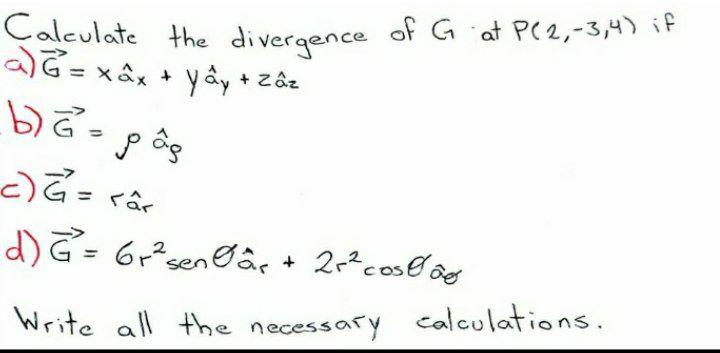 Calculate the divergence of G at P(2,-3,4) if
a) G⃗ = x âx + y ây + z âz
b) G⃗ = ρ âρ
c) G⃗ = r âr
d) G⃗ = 6r² sen θ âr + 2r² cos θ âθ
Write all the necessary calculations.